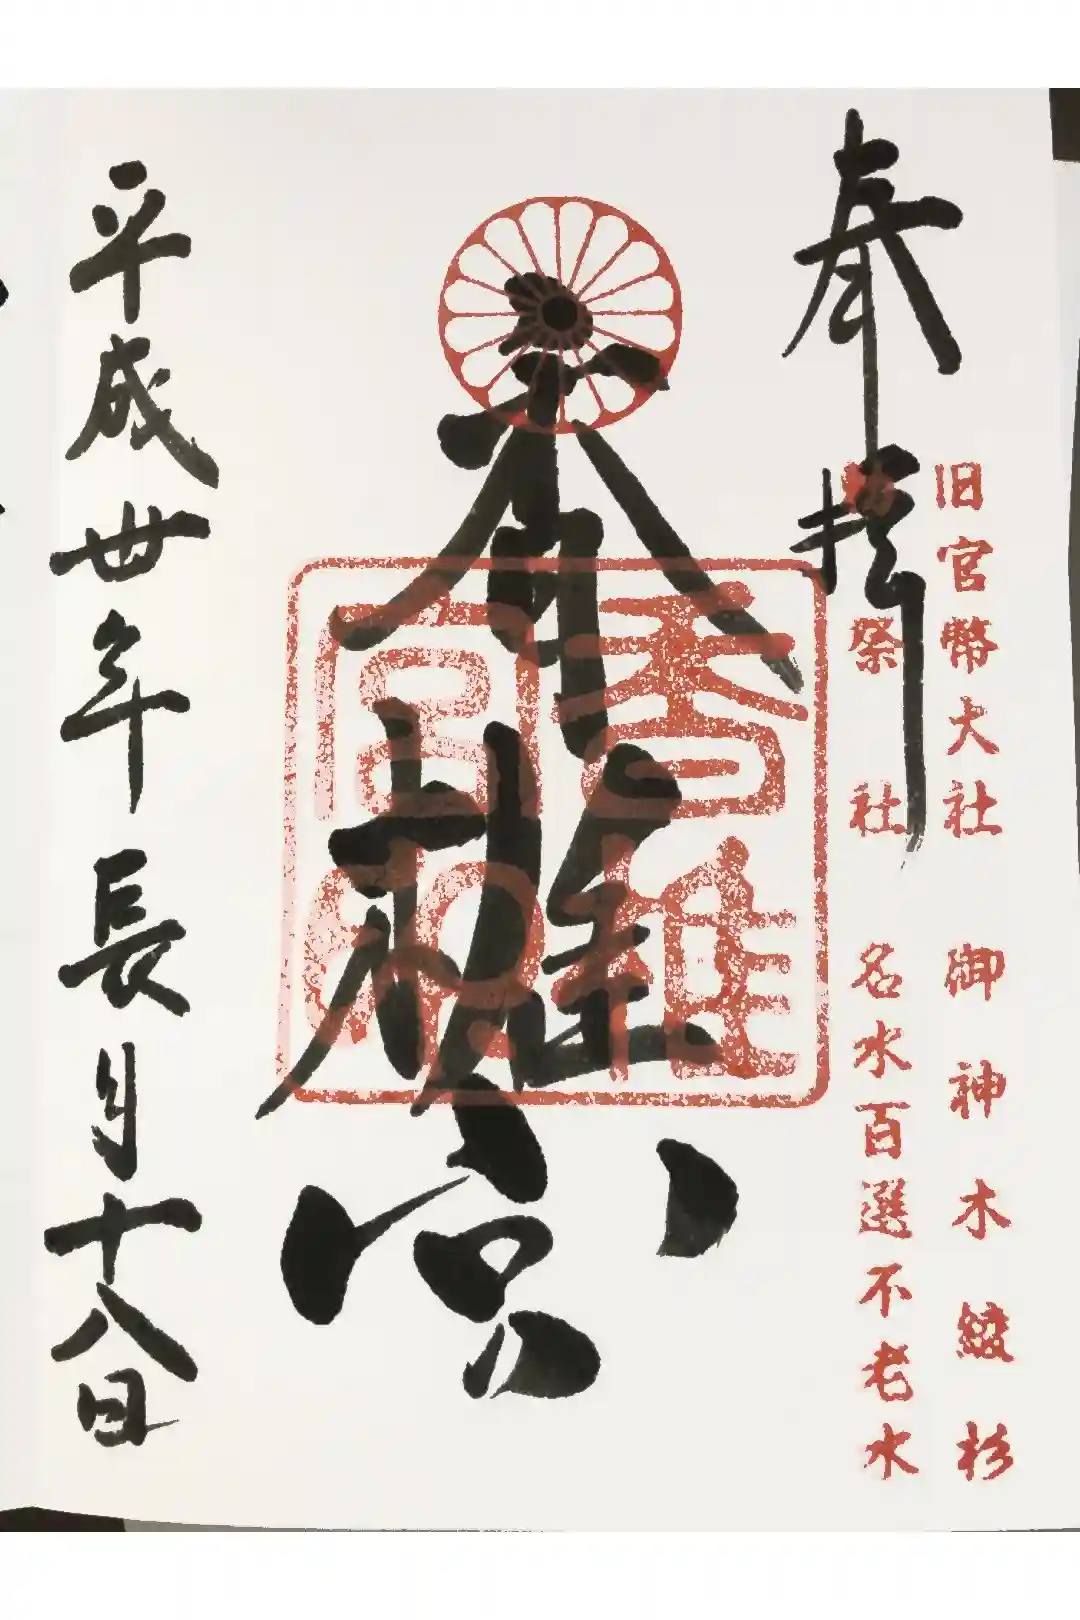 奉拝
旧官幣大社 御神木綾杉
勅祭社 名水百選不老水
香椎宮
香椎宮印
平成卅年長月十八日